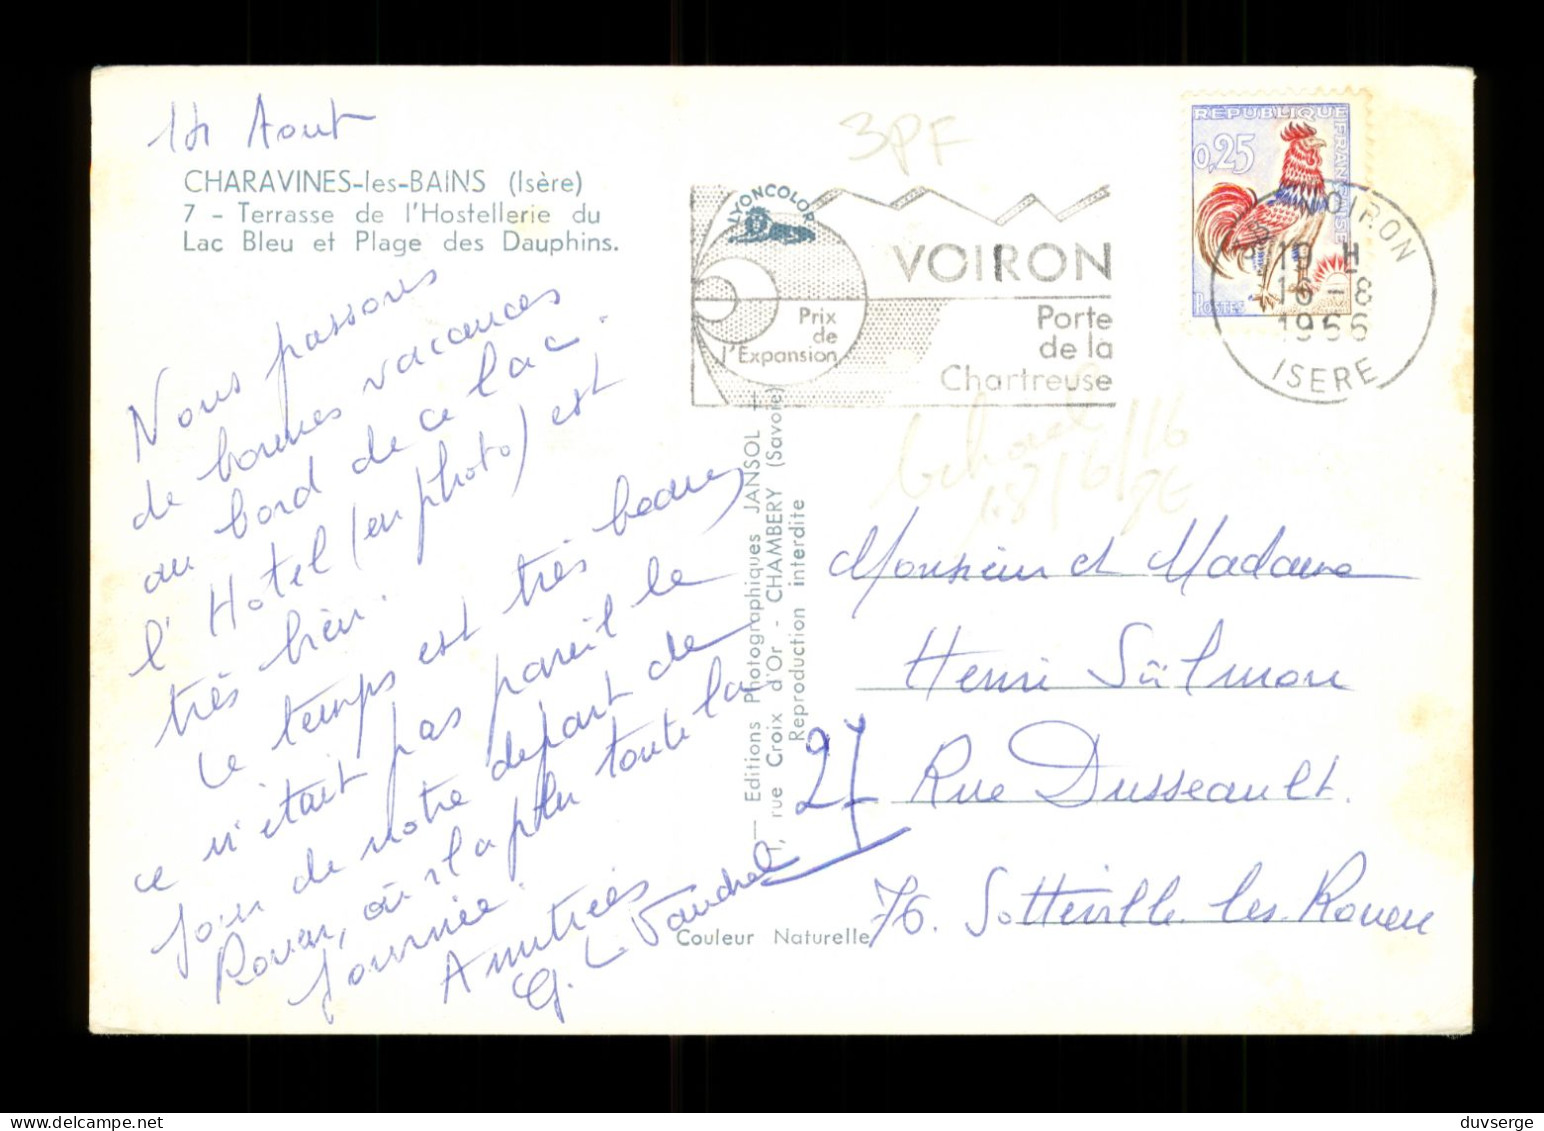 14 Aout
CHARAVINES-les-BAINS (Isère)
7 - Terrasse de l'Hostellerie du
Lac Bleu et Plage des Dauphins.
Nous passons
de bonnes vacances
au bord de ce lac.
l'Hotel (en photo) est
très bien.
Le temps est très beau,
ce n'était pas pareil le
jour de notre depart de
Rouen, où il a plu toute la
journée.
Amitiés
3PF
LYONCOLOR
VOIRON
Prix
de
l'Expansion
Porte
de la
Chartreuse
REPUBLIQUE FRANÇAISE
0,25
POSTES
VOIRON
19 H
16-8
1966
ISERE
— Editions Photographiques JANSOL +
rue Croix d'Or - CHAMBERY (Savoie)
Reproduction interdite
Couleur Naturelle
Monsieur et Madame
Henri Salmon
27 Rue Dusseault.
76. Sotteville les Rouen
duvserge